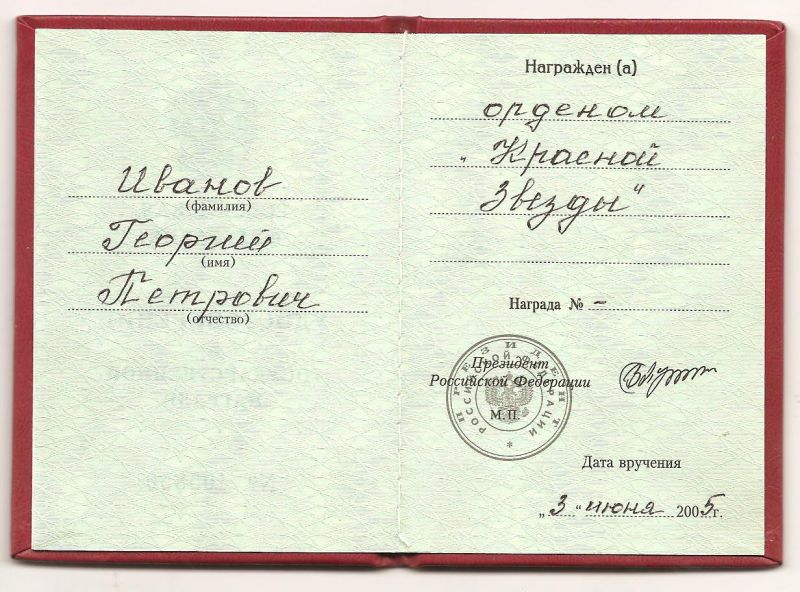 Иванов
(фамилия)
Георгий
(имя)
Петрович
(отчество)
Награжден (а)
орденом
„Красной
Звезды“
Награда № –
ПРЕЗИДЕНТ
РОССИЙСКОЙ ФЕДЕРАЦИИ
Президент
Российской Федерации
М.П.
Дата вручения
„3“ июня 2005г.